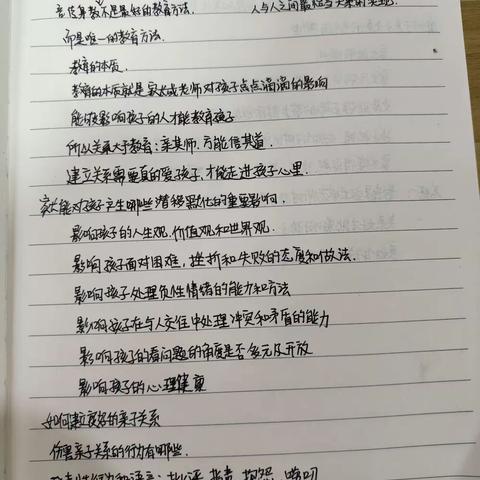 言传身教不是最好的教育方法.
人与人之间最短
而是唯一的教育方法.
教育的本质.
教育的本质就是家长或老师对孩子点点滴滴的影响
能够影响孩子的人才能教育孩子
所以关系大于教育:亲其师.方能信其道.
建立关系需要真的爱孩子,才能走进孩子心里.
家长能对孩子产生哪些潜移默化的重要影响.
影响孩子的人生观.价值观和世界观.
影响孩子面对困难,挫折和失败的态度和做法.
影响孩子处理负性情绪的能力和方法
影响孩子在与人交往中处理冲突和矛盾的能力
影响孩子的看问题的角度是否多元及开放
影响孩子的心理健康
如何建立良好的亲子关系
伤害亲子关系的行为有哪些.
批评 指责 抱怨 唠叨